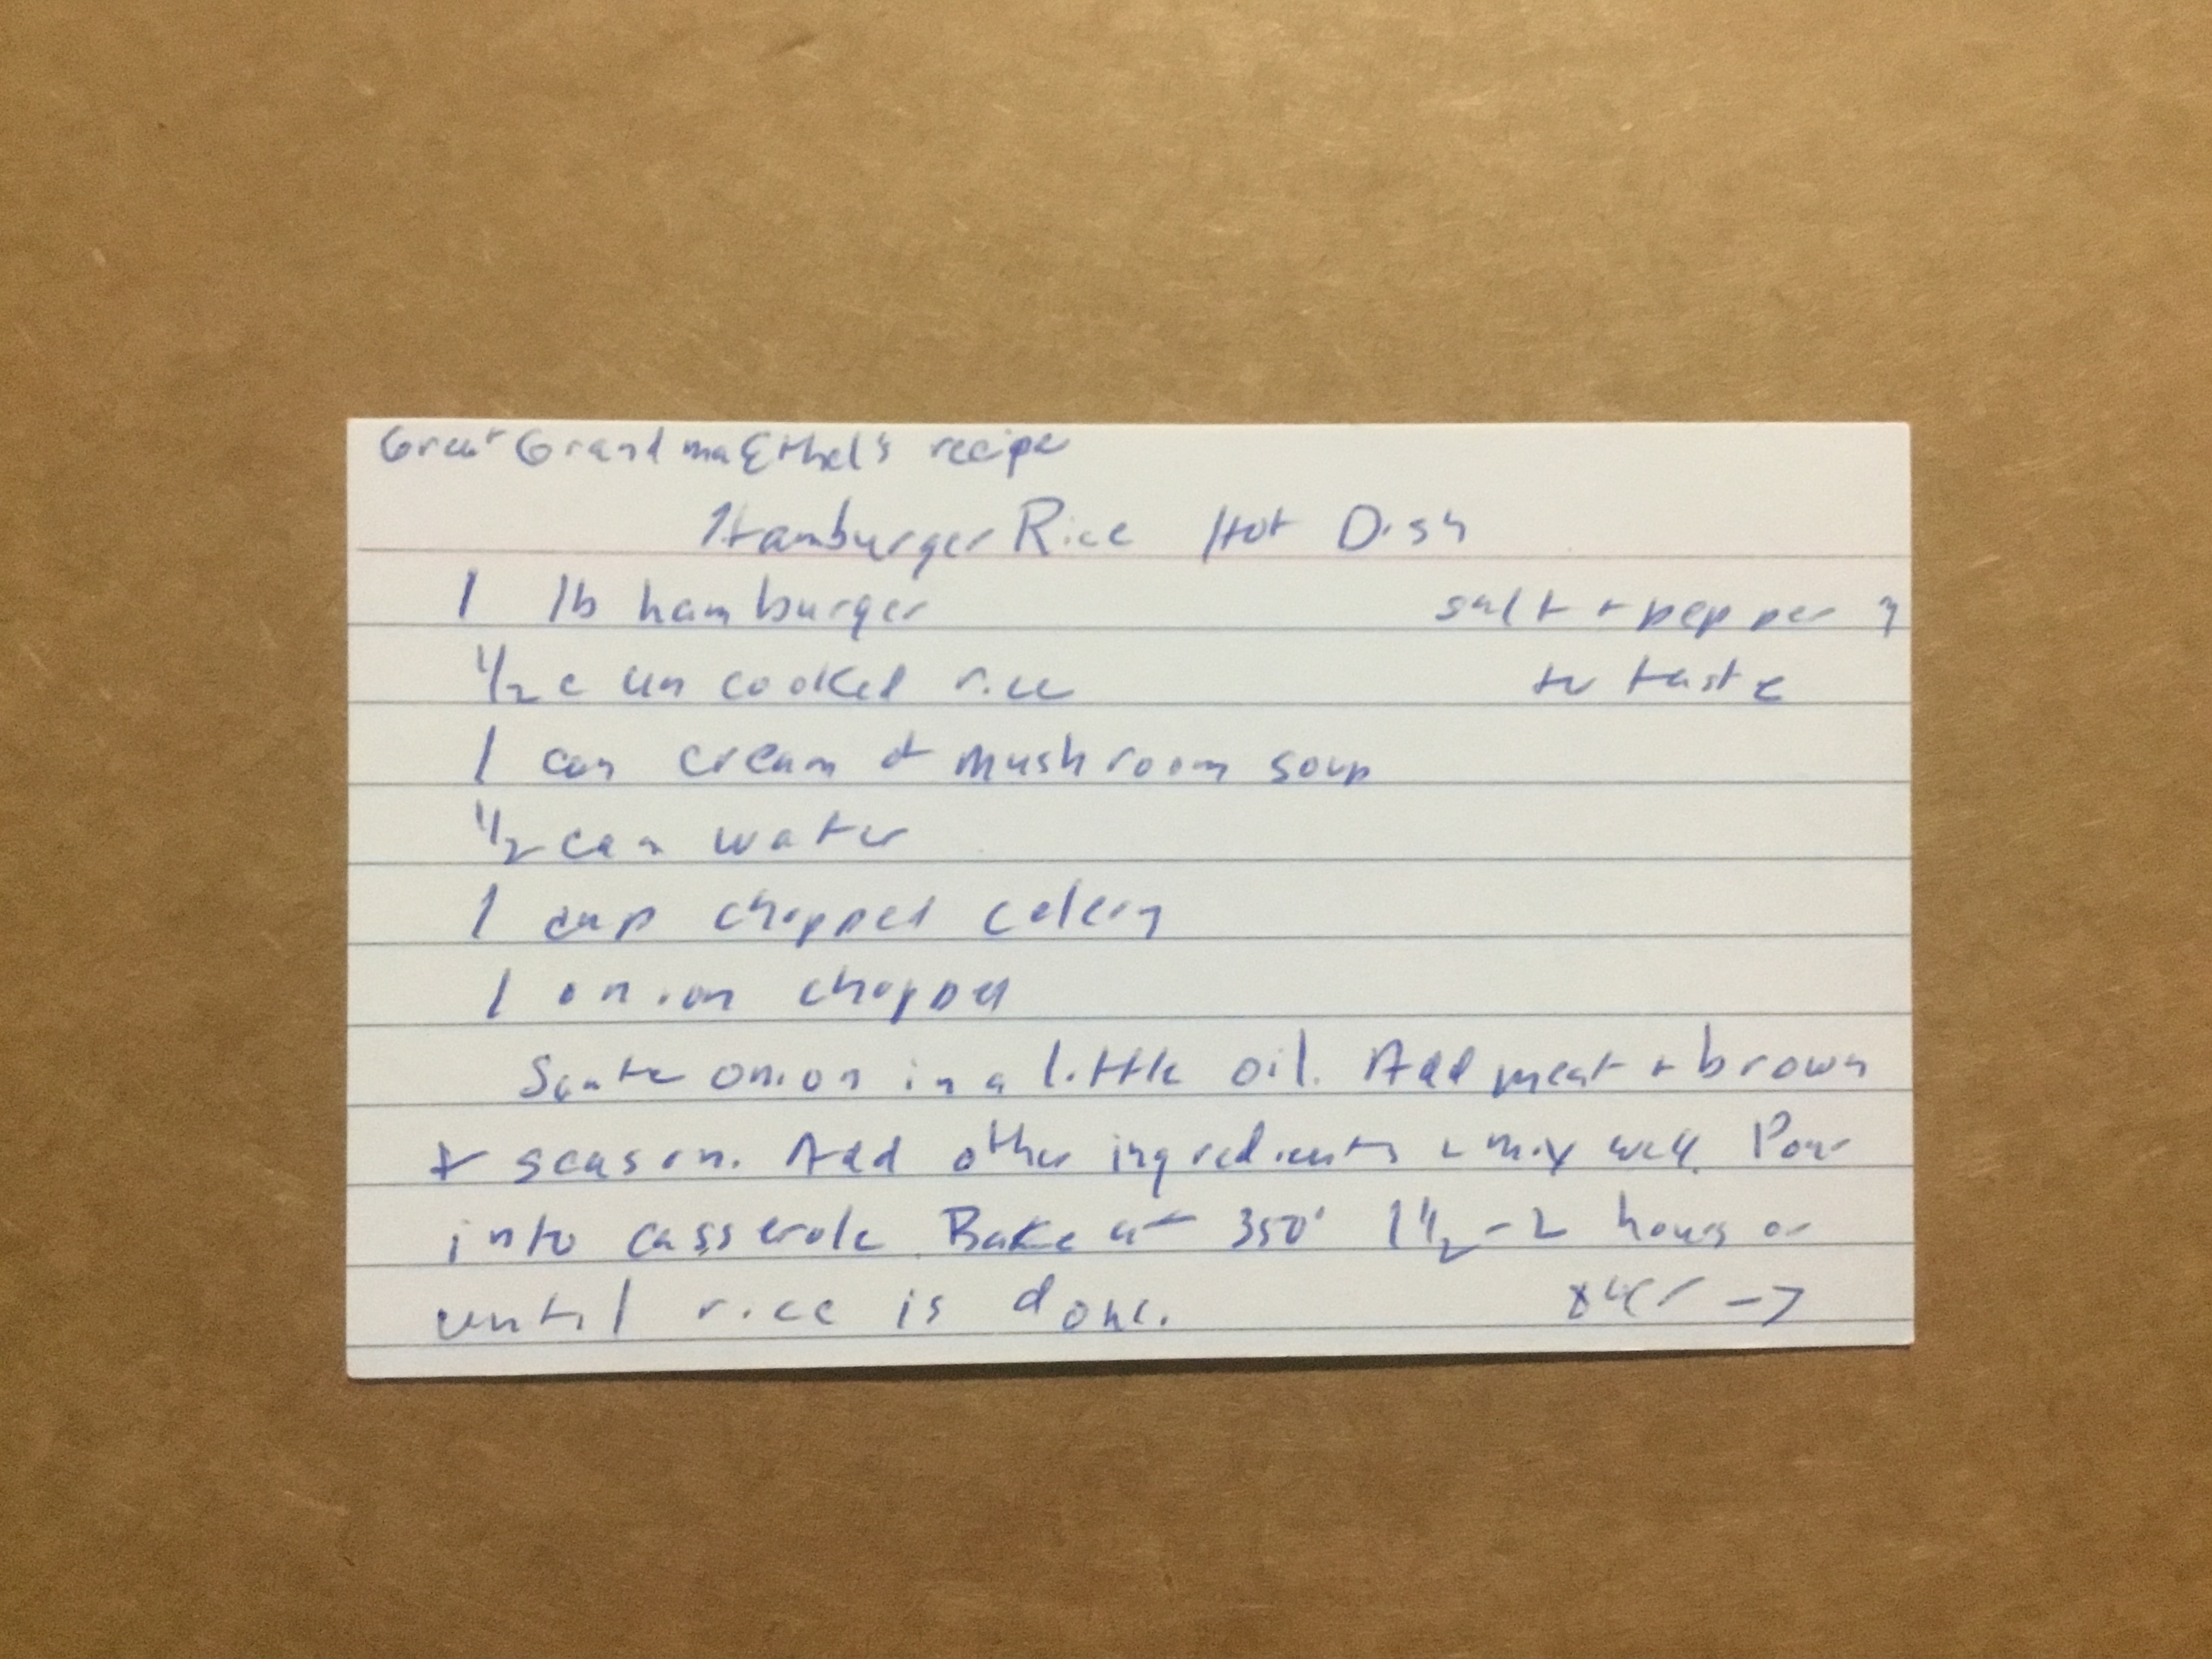 Great Grandma Ethel's recipe
Hamburger Rice Hot Dish
1 lb hamburger
salt + pepper
to taste
1/2 c uncooked rice
1 can cream of mushroom soup
1/2 can water
1 cup chopped celery
1 onion chopped
Saute onion in a little oil. Add meat + brown
+ season. Add other ingredients + mix well. Pour
into casserole. Bake at 350° 1 1/2 - 2 hours or
until rice is done.
over →